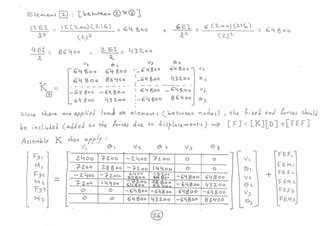 Element 2 : [between ② & ③]
12EI/l³ = 12(200)(216)/(2)³ = 64800 , 6EI/l² = 6(200)(216)/(2)² = 64800
4EI/l = 86400 , 2EI/l = 43200
V₂ θ₂ V₃ θ₃
64800 64800 -64800 64800 V₂
64800 86400 -64800 43200 θ₂
K 2 =
-64800 -64800 64800 -64800 V₃
64800 43200 -64800 86400 θ₃
Since there are applied loads on elements (between nodes), the fixed end forces should
be included (added to the forces due to displacements) → [F] = [K][D] + [FEF]
Assemble K then apply:
V₁ θ₁ V₂ θ₂ V₃ θ₃
2400 7200 -2400 7200 0 0 V₁
M₁ 7200 28800 -7200 14400 0 0 θ₁
-2400 -7200 -64800 64800 V₂
M₂ 7200 14400 -64800 43200 θ₂
0 0 -64800 -64800 64800 -64800 V₃
M₃ 0 0 64800 43200 -64800 86400 θ₃